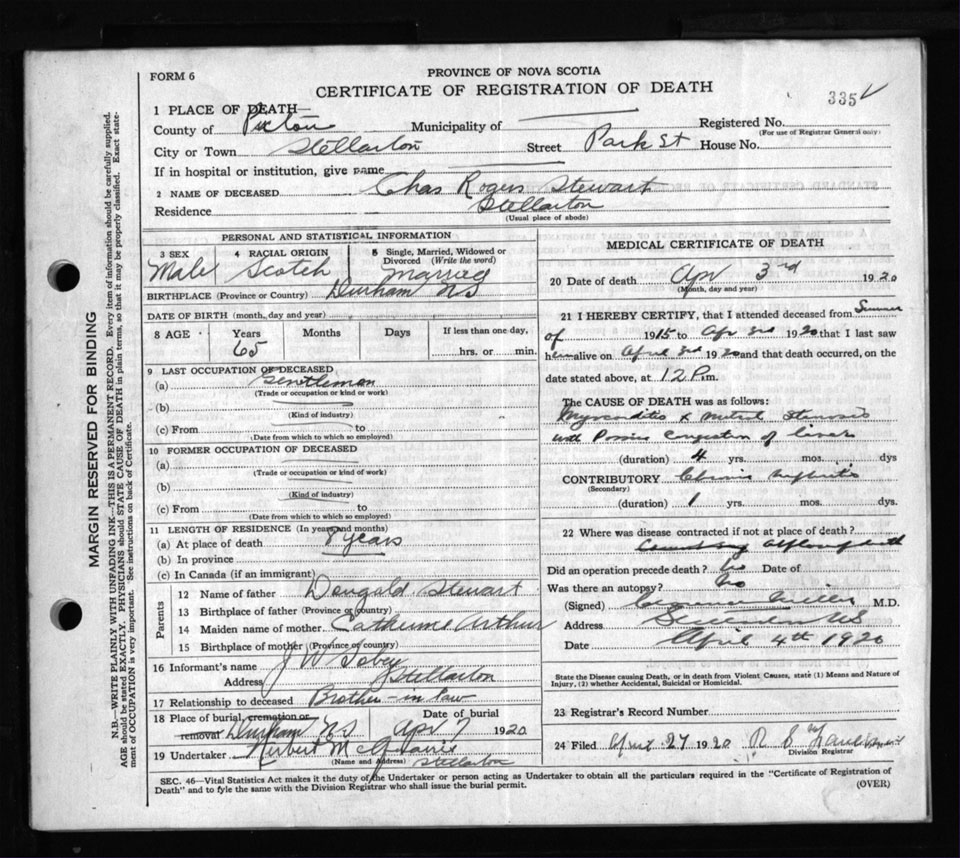 FORM 6
PROVINCE OF NOVA SCOTIA
CERTIFICATE OF REGISTRATION OF DEATH
335
1 PLACE OF DEATH—
County of Pictou Municipality of Registered No.
(For use of Registrar General only)
City or Town Stellarton Street Park St House No.
If in hospital or institution, give name
2 NAME OF DECEASED Chas Rogers Stewart
Residence Stellarton
(Usual place of abode)
PERSONAL AND STATISTICAL INFORMATION
3 SEX 4 RACIAL ORIGIN 5 Single, Married, Widowed or Divorced (Write the word)
Male Scotch Married
BIRTHPLACE (Province or Country) Durham NS
DATE OF BIRTH (month, day and year)
8 AGE Years Months Days If less than one day,
65 hrs. or min.
9 LAST OCCUPATION OF DECEASED
(a) Gentleman
(Trade or occupation or kind or work)
(b)
(Kind of industry)
(c) From to
(Date from which to which so employed)
10 FORMER OCCUPATION OF DECEASED
(a)
(Trade or occupation or kind of work)
(b)
(Kind of industry)
(c) From to
(Date from which to which so employed)
11 LENGTH OF RESIDENCE (In years and months)
(a) At place of death 8 years
(b) In province
(c) In Canada (if an immigrant)
Parents
12 Name of father Dougald Stewart
13 Birthplace of father (Province or country)
14 Maiden name of mother Catherine Arthur
15 Birthplace of mother (Province or country)
16 Informant's name J W Tobey
Address Stellarton
17 Relationship to deceased Brother-in law
18 Place of burial, cremation or removal Durham NS Date of burial Apr 7 1920
19 Undertaker Herbert
(Name and address) Stellarton
MEDICAL CERTIFICATE OF DEATH
20 Date of death Apr 3rd 1920
(Month, day and year)
21 I HEREBY CERTIFY, that I attended deceased from Summer
of 1915 to Apr 3rd 1920 that I last saw
him alive on April 3rd 1920 and that death occurred, on the
date stated above, at 12 P.m.
The CAUSE OF DEATH was as follows:
Myocarditis & Mitral Stenosis
with Passive Congestion of liver
(duration) 4 yrs. mos. dys
CONTRIBUTORY Chronic Nephritis
(Secondary)
(duration) 1 yrs. mos. dys.
22 Where was disease contracted if not at place of death?
Did an operation precede death? No Date of
Was there an autopsy? No
(Signed) Miller M.D.
Address NS
Date April 4th 1920
State the Disease causing Death, or in death from Violent Causes, state (1) Means and Nature of Injury, (2) whether Accidental, Suicidal or Homicidal.
23 Registrar's Record Number
24 Filed 27 1920 R S
Division Registrar
SEC. 46—Vital Statistics Act makes it the duty of the Undertaker or person acting as Undertaker to obtain all the particulars required in the "Certificate of Registration of
Death" and to fyle the same with the Division Registrar who shall issue the burial permit.
(OVER)
MARGIN RESERVED FOR BINDING
N.B.—WRITE PLAINLY WITH UNFADING INK—THIS IS A PERMANENT RECORD. Every item of information should be carefully supplied.
AGE should be stated EXACTLY. PHYSICIANS should STATE CAUSE OF DEATH in plain terms, so that it may be properly classified. Exact state-
ment of OCCUPATION is very important. See instructions on back of Certificate.